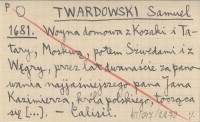 P
TWARDOWSKI Samuel
1681. Woyna domowa z Kozaki i Ta-
tary, Moskwą, potem Szwedami i z
Węgry, przez lat dwanaście za pa-
nowania najjaśniejszego pana Jana
Kazimierza, króla polskiego, tocząca
się [...]. — Calissii.